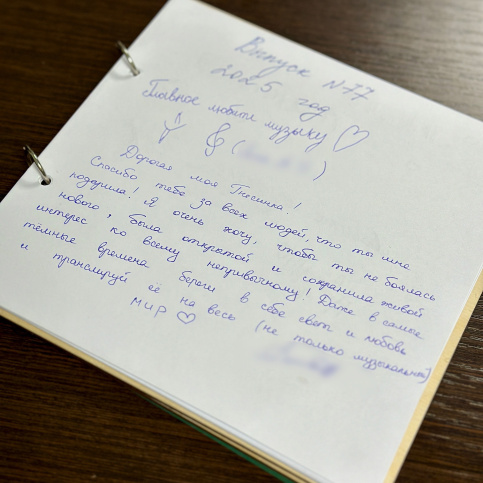 Выпуск N77
2025 год
Главное любить музыку ♡
( )
Дорогая моя Гнесинка!
Спасибо тебе за всех людей, что ты мне
подарила! Я очень хочу, чтобы ты не боялась
нового, была открытой и сохранила живой
интерес ко всему непривычному! Даже в самые
тёмные времена береги в себе свет и любовь
и транслируй её на весь (не только музыкальный)
мир ♡